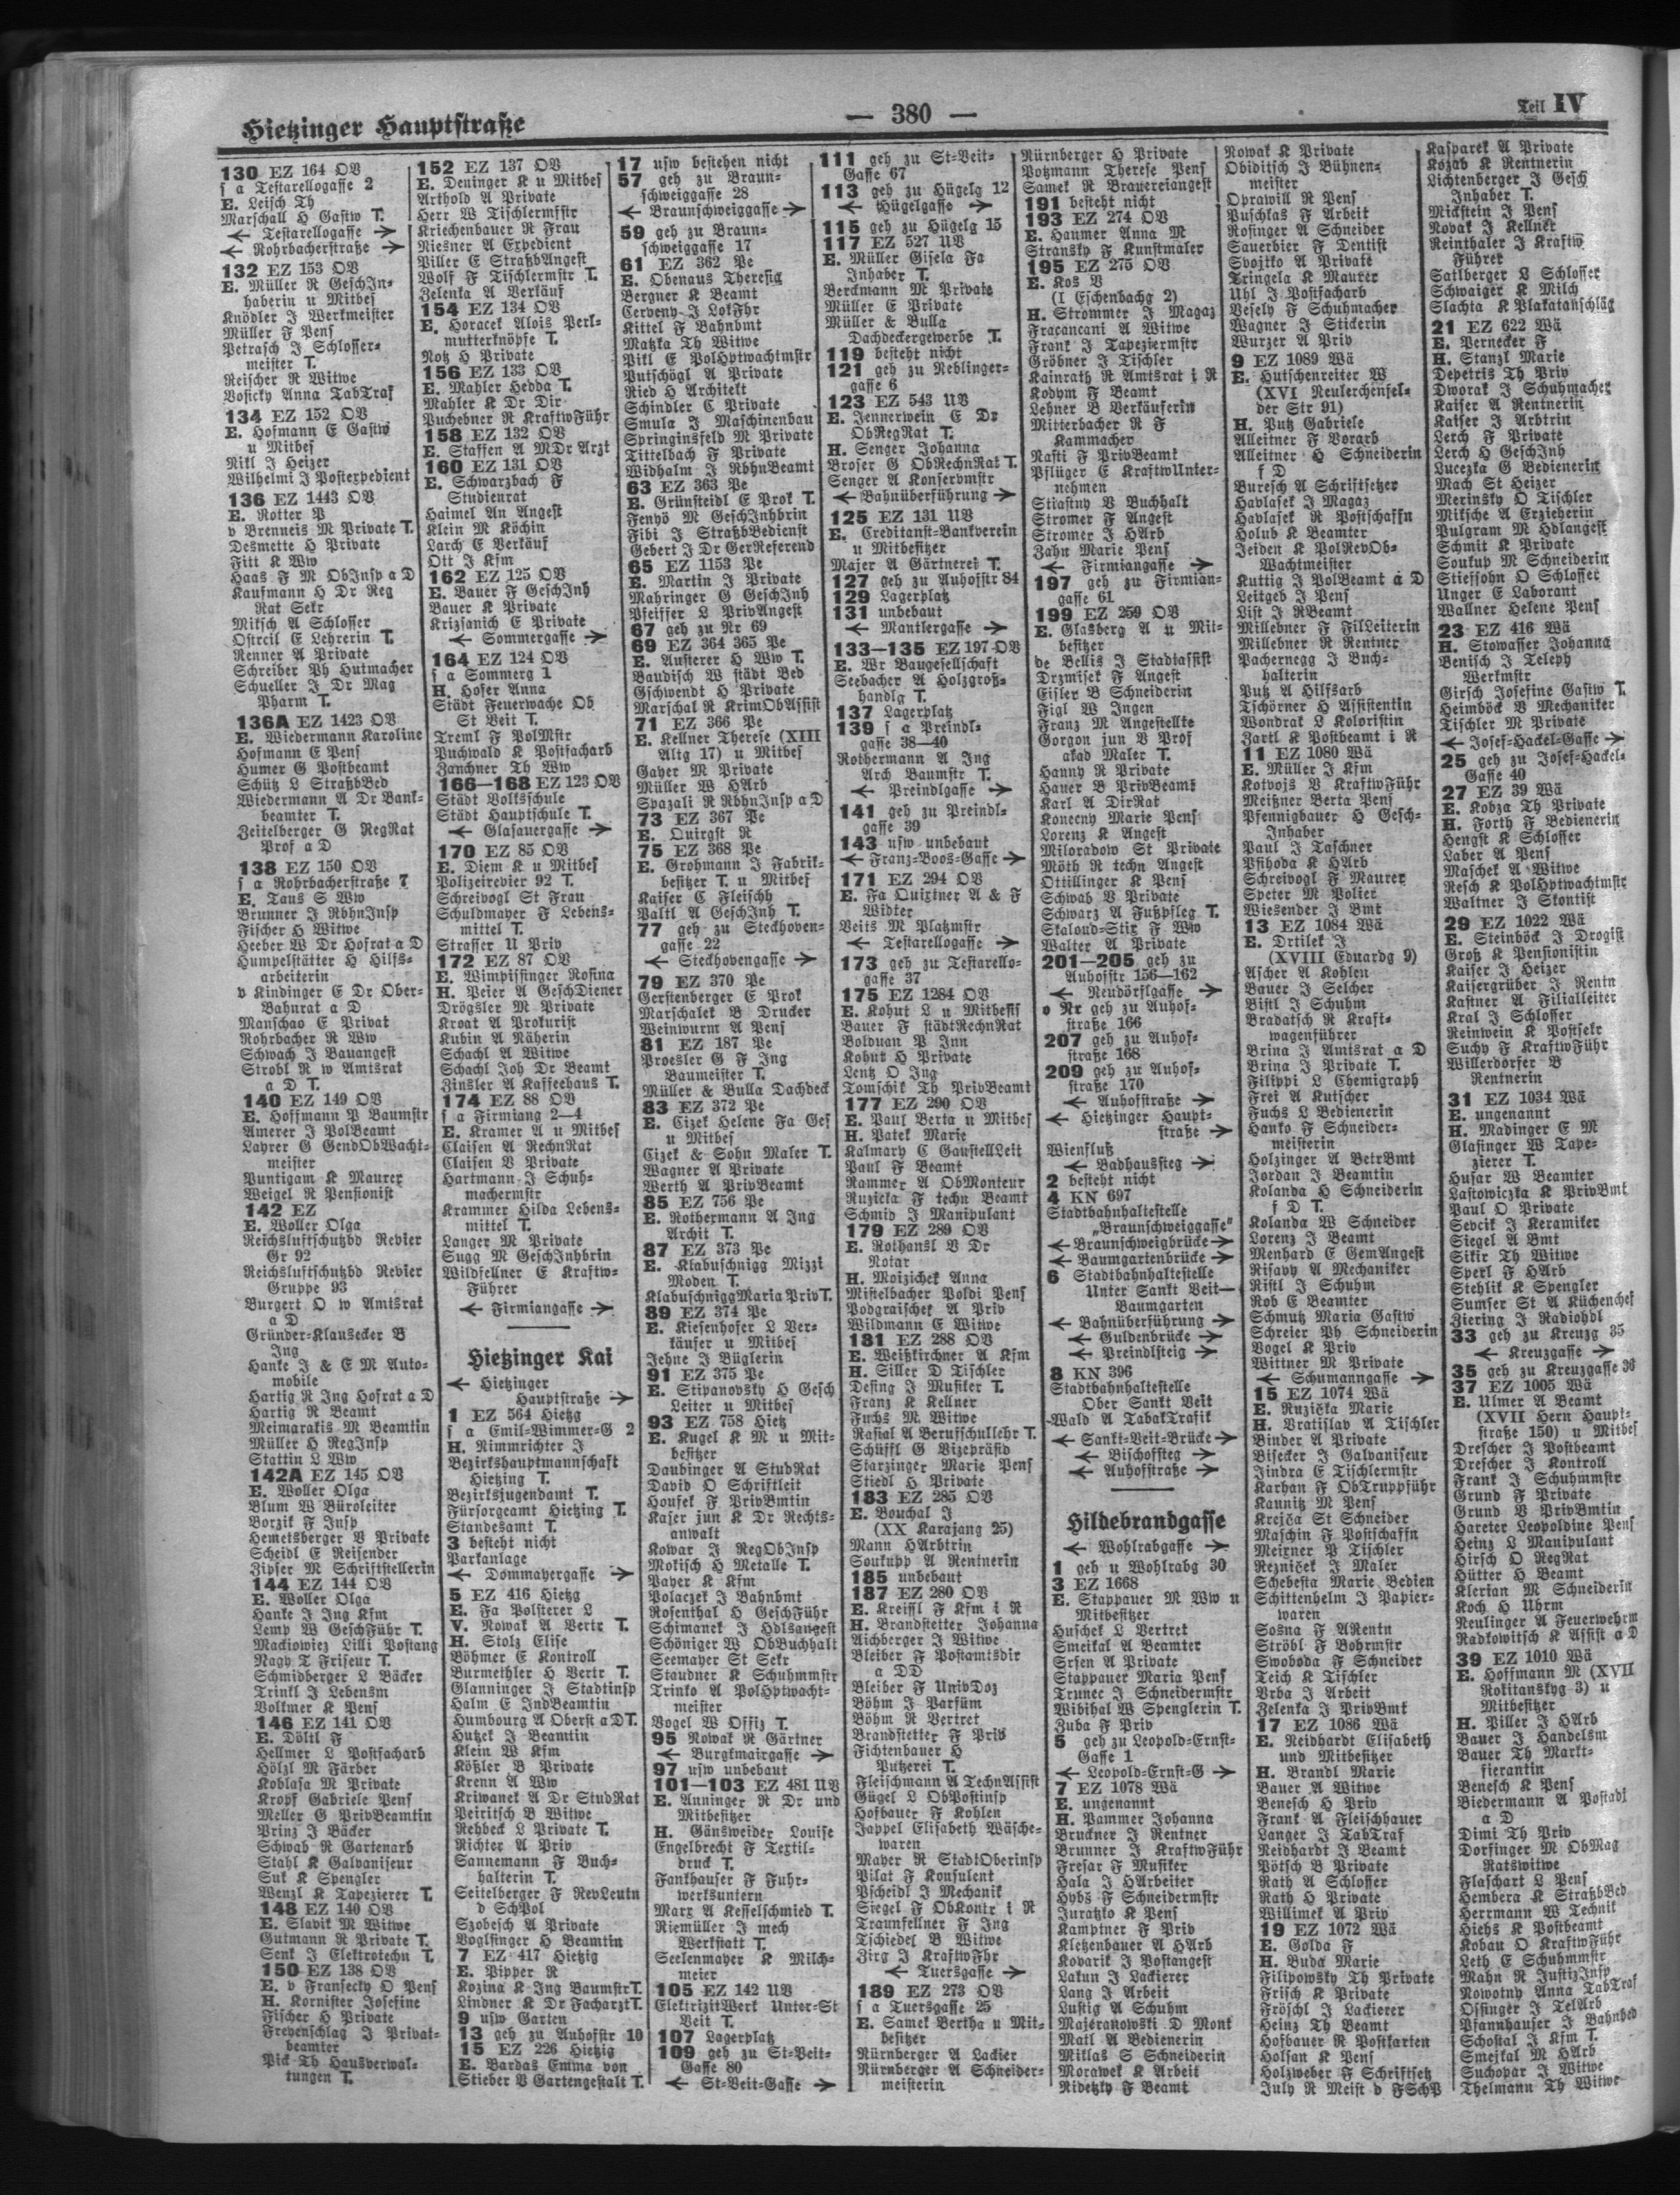 Hietzinger Hauptstraße
— 380 —
Teil IV
130 EZ 164 OV
s a Testarellogasse 2
E. Leisch Th
Marschall H Gastw T.
← Testarellogasse →
← Rohrbacherstraße →
132 EZ 153 OV
E. Müller R GeschIn-
haberin u Mitbes
Knödler J Werkmeister
Müller F Pens
Petrasch J Schlosser-
meister T.
Reischer R Witwe
Vosicky Anna TabTraf
134 EZ 152 OV
E. Hofmann E Gastw
u Mitbes
Nikl J Heizer
Wilhelmi J Postexpedient
136 EZ 1443 OV
E. Rotter P
v Brenneis M Private T.
Desmette H Private
Fitt K Ww
Haas F M ObInsp a D
Kaufmann H Dr Reg
Rat Sekr
Mitsch A Schlosser
Ostreil E Lehrerin T.
Renner A Private
Schreiber Ph Hutmacher
Schueller J Dr Mag
Pharm T.
136A EZ 1423 OV
E. Wiedermann Karoline
Hofmann E Pens
Humer G Postbeamt
Schütz L StraßbBed
Wiedermann A Dr Bank-
beamter T.
Zeitelberger G RegRat
Prof a D
138 EZ 150 OV
s a Rohrbacherstraße 7
E. Taus S Ww
Brunner J RbhnInsp
Fischer H Witwe
Heeber W Dr Hofrat a D
Humpelstätter H Hilfs-
arbeiterin
v Kindinger E Dr Ober-
Bahnrat a D
Manschao E Privat
Rohrbacher R Ww
Schwach J Bauangest
Strobl R w Amtsrat
a D T.
140 EZ 149 OV
E. Hoffmann P Baumstr
Amerer J PolBeamt
Layrer G GendObWacht-
meister
Puntigam K Maurer
Weigel R Pensionist
142 EZ
E. Woller Olga
Reichsluftschutzbd Revier
Gr 92
Reichsluftschutzbd Revier
Gruppe 93
Burgert O w Amtsrat
a D
Gründer-Klausecker B
Ing
Hanke J & E M Auto-
mobile
Hartig R Ing Hofrat a D
Hartig R Beamt
Meimarakis M Beamtin
Müller H RegInsp
Stattin L Ww
142A EZ 145 OV
E. Woller Olga
Blum W Büroleiter
Borzik F Insp
Hemetsberger V Private
Scheidl E Reisender
Zipser M Schriftstellerin
144 EZ 144 OV
E. Woller Olga
Hanke J Ing Kfm
Lemp W GeschFühr T.
Mackowicz Lilli Postang
Nagy T Friseur T.
Schmidberger L Bäcker
Trinkl J Lebensm
Volkmer K Pens
146 EZ 141 OV
E. Döltl F
Hellmer L Postfacharb
Hölzl M Färber
Koblasa M Private
Kropf Gabriele Pens
Meller G PrivBeamtin
Prinz J Bäcker
Schwab R Gartenarb
Stahl K Galvaniseur
Suk K Spengler
Wenzl K Tapezierer T.
148 EZ 140 OV
E. Slavik M Witwe
Gutmann R Private T.
Senk J Elektrotechn T.
150 EZ 138 OV
E. v Fransecky O Pens
H. Kornister Josefine
Fischer H Private
Freyenschlag J Privat-
beamter
Pick Th Hausverwal-
tungen T.
152 EZ 137 OV
E. Deninger K u Mitbes
Arthold A Private
Herr W Tischlermstr
Kriechenbauer R Frau
Niesner A Expedient
Piller E StraßbAngest
Wolf F Tischlermstr T.
Zelenka A Verkäuf
154 EZ 134 OV
E. Horacek Alois Perl-
mutterknöpfe T.
Notz H Private
156 EZ 133 OV
E. Mahler Hedda T.
Mahler K Dr Dir
Puchebner R KraftwFühr
158 EZ 132 OV
E. Staffen A MDr Arzt
160 EZ 131 OV
E. Schwarzbach F
Studienrat
Haimel An Angest
Klein M Köchin
Larch E Verkäuf
Ott J Kfm
162 EZ 125 OV
E. Bauer F GeschInh
Bauer K Private
Krizsanich E Private
← Sommergasse →
164 EZ 124 OV
s a Sommerg 1
H. Hofer Anna
Städt Feuerwache Ob
St Veit T.
Treml F PolMstr
Puchwald K Postfacharb
Zanchner Th Ww
166—168 EZ 123 OV
Städt Volksschule
Städt Hauptschule T.
← Glasauergasse →
170 EZ 85 OV
E. Diem K u Mitbes
Polizeirevier 92 T.
Schreivogl St Frau
Schuldmayer F Lebens-
mittel T.
Strasser U Priv
172 EZ 87 OV
E. Wimpissinger Rosina
H. Peier A GeschDiener
Drögsler M Private
Kroat A Prokurist
Kubin A Näherin
Schachl A Witwe
Schachl Joh Dr Beamt
Zinsler A Kaffeehaus T.
174 EZ 88 OV
s a Firmiang 2—4
E. Kramer A u Mitbes
Claisen A RechnRat
Claisen V Private
Hartmann J Schuh-
machermstr
Krammer Hilda Lebens-
mittel T.
Langer M Private
Sugg M GeschInhbrin
Wildfellner E Kraftw-
Führer
← Firmiangasse →
Hietzinger Kai
← Hietzinger
Hauptstraße →
1 EZ 564 Hietzg
s a Emil-Wimmer-G 2
H. Nimmrichter J
Bezirkshauptmannschaft
Hietzing T.
Bezirksjugendamt T.
Fürsorgeamt Hietzing T.
Standesamt T.
3 besteht nicht
Parkanlage
← Dommayergasse →
5 EZ 416 Hietzg
E. Fa Polsterer L
V. Nowak A Vertr T.
H. Stolz Elise
Böhmer E Kontroll
Burmethler H Vertr T.
Glanninger J Stadtinsp
Halm E IndBeamtin
Humbourg A Oberst a D T.
Hutzek J Beamtin
Klein W Kfm
Kößler B Private
Krenn A Ww
Kriwanek A Dr StudRat
Peiritsch B Witwe
Rehbeck L Private T.
Richter A Priv
Sannemann F Buch-
halterin T.
Seitelberger F RevLeutn
d SchPol
Szobesch A Private
Voglsinger H Beamtin
7 EZ 417 Hietzig
E. Pipper R
Kozina K Ing BaumstrT.
Lindner K Dr FacharztT.
9 usw Garten
13 geh zu Auhofstr 10
15 EZ 226 Hietzig
E. Bardas Emma von
Stieber V Gartengestalt T.
17 usw bestehen nicht
57 geh zu Braun-
schweiggasse 28
← Braunschweiggasse →
59 geh zu Braun-
schweiggasse 17
61 EZ 362 Pe
E. Obenaus Theresia
Bergner K Beamt
Cerveny J LokFhr
Kittel F Bahnbmt
Matzka Th Witwe
Pikl E PolHptwachtmstr
Putschögl A Private
Ried H Architekt
Schindler C Private
Smula J Maschinenbau
Springinsfeld M Private
Tittelbach F Private
Widhalm J RbhnBeamt
63 EZ 363 Pe
E. Grünsteidl E Prok T.
Fenyö M GeschInhbrin
Fibi J StraßbBedienst
Gebert J Dr GerReferend
65 EZ 1153 Pe
E. Martin J Private
Mahringer G GeschInh
Pfeiffer L PrivAngest
67 geh zu Nr 69
69 EZ 364 365 Pe
E. Austerer H Ww T.
Baudisch W städt Bed
Gschwendt H Private
Marschal R KrimObAssist
71 EZ 366 Pe
E. Kellner Therese (XIII
Altg 17) u Mitbes
Gayer M Private
Müller W HArb
Spazali R RbhnInsp a D
73 EZ 367 Pe
E. Quirgst R
75 EZ 368 Pe
E. Grohmann J Fabrik-
besitzer T. u Mitbes
Kaiser C Fleischh
Paltl A GeschInh T.
77 geh zu Steckhoven-
gasse 22
← Steckhovengasse →
79 EZ 370 Pe
Gerstenberger E Prok
Marschalek B Drucker
Weinwurm A Pens
81 EZ 187 Pe
Proesler G F Ing
Baumeister T.
Müller & Bulla Dachdeck
83 EZ 372 Pe
E. Cizek Helene Fa Ges
u Mitbes
Cizek & Sohn Maler T.
Wagner A Private
Werth A PrivBeamt
85 EZ 756 Pe
E. Rothermann A Ing
Archit T.
87 EZ 373 Pe
E. Klabuschnigg Mizzi
Moden T.
KlabuschniggMaria PrivT.
89 EZ 374 Pe
E. Kiesenhofer L Ver-
käufer u Mitbes
Jehne J Büglerin
91 EZ 375 Pe
E. Stipanovsky H Gesch
Leiter u Mitbes
93 EZ 758 Hietz
E. Kugel K M u Mit-
besitzer
Daubinger A StudRat
David O Schriftleit
Housek F PrivBmtin
Kaser jun K Dr Rechts-
anwalt
Kowar J RegObInsp
Mokisch H Metalle T.
Payer K Kfm
Polaczek J Bahnbmt
Rosenthal H GeschFühr
Schimanek J Hdlsangest
Schöniger W ObBuchhalt
Seemayer St Sekr
Staudner K Schuhmstr
Trinko A PolHptwacht-
meister
Vogel W Offiz T.
95 Nowak R Gärtner
← Burgkmairgasse →
97 usw unbebaut
101—103 EZ 481 UV
E. Anninger R Dr und
Mitbesitzer
H. Gänsweider Louise
Engelbrecht F Textil-
druck T.
Fankhauser F Fuhr-
werksuntern
Marx A Kesselschmied T.
Riemüller J mech
Werkstatt T.
Seelenmayer K Milch-
meier
105 EZ 142 UV
ElektrizitWerk Unter-St
Veit T.
107 Lagerplatz
109 geh zu St-Veit-
Gasse 80
← St-Veit-Gasse →
111 geh zu St-Veit-
Gasse 67
113 geh zu Hügelg 12
← Hügelgasse →
115 geh zu Hügelg 15
117 EZ 527 UV
E. Müller Gisela Fa
Inhaber T.
Berckmann M Private
Müller E Private
Müller & Bulla
Dachdeckergewerbe T.
119 besteht nicht
121 geh zu Feblinger-
gasse 6
123 EZ 543 UV
E. Jennerwein E Dr
ObRegRat T.
H. Senger Johanna
Broser G ObRechnRat T.
Senger A Konservmstr
← Bahnüberführung →
125 EZ 131 UV
E. Creditanst-Bankverein
u Mitbesitzer
Majer A Gärtnerei T.
127 geh zu Auhofstr 84
129 Lagerplatz
131 unbebaut
← Mantlergasse →
133—135 EZ 197 OV
E. Wr Baugesellschaft
Seebacher A Holzgroß-
handlg T.
137 Lagerplatz
139 s a Preindl-
gasse 38—40
Rothermann A Ing
Arch Baumstr T.
← Preindlgasse →
141 geh zu Preindl-
gasse 39
143 usw unbebaut
← Franz-Boos-Gasse →
171 EZ 294 OV
E. Fa Quixtner A & F
Widter
Veits M Platzmstr
← Testarellogasse →
173 geh zu Testarello-
gasse 37
175 EZ 1284 OV
E. Kohut L u Mitbesis
Bauer F städtRechnRat
Bolduan P Inn
Kohut H Private
Lentz O Ing
Tomschik Th PrivBeamt
177 EZ 290 OV
E. Paul Berta u Mitbes
H. Patek Marie
Kalmary C GaustellLeit
Paul F Beamt
Rammer A ObMonteur
Ruzicka F techn Beamt
Schmid J Manipulant
179 EZ 289 OV
E. Rothansl V Dr
Notar
H. Moizichek Anna
Mistelbacher Poldi Pens
Podgraischek A Priv
Wildmann E Witwe
181 EZ 288 OV
E. Weißkirchner A Kfm
H. Siller D Tischler
Desing J Musiker T.
Franz K Kellner
Fuchs M Witwe
Rasial A Berufschullehr T.
Schüffl G Vizepräsid
Starzinger Marie Pens
Stiedl H Private
183 EZ 285 OV
E. Bouchal J
(XX Karajang 25)
Mann HArbtrin
Soukupp A Rentnerin
185 unbebaut
187 EZ 280 OV
E. Kreissl F Kfm i R
H. Brandstetter Johanna
Aichberger J Witwe
Bleiber F Postamtsdir
a DD
Bleiber F UnivDoz
Böhm J Parfüm
Böhm R Vertret
Brandstetter F Priv
Fichtenbauer H
Putzerei T.
Fleischmann A TechnAssist
Gügel L ObPostinsp
Hofbauer F Kohlen
Jappel Elisabeth Wäsche-
waren
Mayer R StadtOberinsp
Pilat F Konsulent
Pscheidl J Mechanik
Siegel F ObKontr i R
Traunfellner F Ing
Tschiedel B Witwe
Zirg J KraftwFhr
← Tuersgasse →
189 EZ 273 OV
s a Tuersgasse 25
E. Samek Bertha u Mit-
besitzer
Nürnberger A Lackier
Nürnberger A Schneider-
meisterin
Nürnberger H Private
Potzmann Therese Pens
Samek R Brauereiangest
191 besteht nicht
193 EZ 274 OV
E. Haumer Anna M
Stransky F Kunstmaler
195 EZ 275 OV
E. Kos V
(I Eschenbachg 2)
H. Strommer J Magaz
Fracancani A Witwe
Frank J Tapeziermstr
Gröbner J Tischler
Kainrath R Amtsrat i R
Kodym F Beamt
Lehner B Verkäuferin
Mitterbacher R F
Kammacher
Nasti F PrivBeamt
Pflüger E KraftwUnter-
nehmen
Stiastny V Buchhalt
Stromer F Angest
Stromer J HArb
Zahn Marie Pens
← Firmiangasse →
197 geh zu Firmian-
gasse 61
199 EZ 259 OV
E. Glasberg A u Mit-
besitzer
de Bellis J Stadtassist
Drzmisek F Angest
Eisler B Schneiderin
Figl W Ingen
Franz M Angestellte
Gorgon jun V Prof
akad Maler T.
Hanny R Private
Hauer B PrivBeamt
Karl A DirRat
Konecny Marie Pens
Lorenz K Angest
Miloradow St Private
Möth R techn Angest
Ottillinger K Pens
Schwab V Private
Schwarz A Fußpfleg T.
Skaloud-Stix F Ww
Walter A Private
201—205 geh zu
Auhofstr 156—162
← Neudörflgasse →
o Nr geh zu Auhof-
straße 166
207 geh zu Auhof-
straße 168
209 geh zu Auhof-
straße 170
← Auhofstraße →
← Hietzinger Haupt-
straße →
Wienfluß
← Badhaussteg →
2 besteht nicht
4 KN 697
Stadtbahnhaltestelle
„Braunschweiggasse“
← Braunschweigbrücke →
← Baumgartenbrücke →
6 Stadtbahnhaltestelle
Unter Sankt Veit—
Baumgarten
← Bahnüberführung →
← Guldenbrücke →
← Preindlsteig →
8 KN 396
Stadtbahnhaltestelle
Ober Sankt Veit
Wald A TabakTrafik
← Sankt-Veit-Brücke →
← Bischofsteg →
← Auhofstraße →
Hildebrandgasse
← Wohlrabgasse →
1 geh u Wohlrabg 30
3 EZ 1668
E. Stappauer M Ww u
Mitbesitzer
Huschek L Vertret
Smeikal A Beamter
Srsen A Private
Stappauer Maria Pens
Trunec J Schneidermstr
Wibihal W Spenglerin T.
Zuba F Priv
5 geh zu Leopold-Ernst-
Gasse 1
← Leopold-Ernst-G →
7 EZ 1078 Wä
E. ungenannt
H. Pammer Johanna
Bruckner J Rentner
Brunner J KraftwFühr
Fresar F Musiker
Hala J HArbeiter
Hybs F Schneidermstr
Juratzko K Pens
Kamptner F Priv
Kletzenbauer A HArb
Kovarik J Postangest
Lakun J Lackierer
Lang J Arbeit
Lustig A Schuhm
Majeranowski D Mont
Matl A Bedienerin
Miklas S Schneiderin
Morawek K Arbeit
Nidetzky F Beamt
Nowak K Private
Obiditsch J Bühnen-
meister
Oprawill R Pens
Puschkas F Arbeit
Rosinger A Schneider
Sauerbier F Dentist
Svojtko A Private
Tringela K Maurer
Uhl J Postfacharb
Vesely F Schuhmacher
Wagner J Stickerin
Wurzer A Priv
9 EZ 1089 Wä
E. Hutschenreiter W
(XVI Neulerchenfel-
der Str 91)
H. Putz Gabriele
Alleitner F Vorarb
Alleitner H Schneiderin
f D
Buresch A Schriftsetzer
Havlasek J Magaz
Havlasek R Postschaffn
Holub K Beamter
Jeiden K PolRevOb-
Wachtmeister
Kuttig J PolBeamt a D
Leitgeb J Pens
List J RBeamt
Millebner F FilLeiterin
Millebner R Rentner
Pachernegg J Buch-
halterin
Putz A Hilfsarb
Tschörner H Assistentin
Wondrak L Koloristin
Zartl K Postbeamt i R
11 EZ 1080 Wä
E. Müller J Kfm
Kotvojs V KraftwFühr
Meißner Berta Pens
Pfennigbauer H Gesch-
Inhaber
Paul J Taschner
Přihoda K HArb
Schreivogl F Maurer
Speter M Polier
Wiesender J Bmt
13 EZ 1084 Wä
E. Drtilek J
(XVIII Eduardg 9)
Ascher A Kohlen
Bauer J Selcher
Bistl J Schuhm
Bradatsch R Kraft-
wagenführer
Brina J Amtsrat a D
Brina J Private T.
Filippi L Chemigraph
Frei A Kutscher
Fuchs L Bedienerin
Hanko F Schneider-
meisterin
Holzinger A BetrBmt
Jordan J Beamtin
Kolanda H Schneiderin
f D T.
Kolanda W Schneider
Lorenz J Beamt
Menhard E GemAngest
Risavy A Mechaniker
Ristl J Schuhm
Rob E Beamter
Schmutz Maria Gastw
Schreier Ph Schneiderin
Vogel K Priv
Wittner M Private
← Schumanngasse →
15 EZ 1074 Wä
E. Ružička Marie
H. Vratislav A Tischler
Binder A Private
Bisecker J Galvaniseur
Jindra E Tischlermstr
Karhan F ObTruppführ
Kaunitz M Pens
Krejča St Schneider
Maschin F Postschaffn
Meixner P Tischler
Rezniček J Maler
Schebesta Marie Bedien
Schittenhelm J Papier-
waren
Sosna F ARentn
Ströbl F Bohrmstr
Swoboda F Schneider
Teich K Tischler
Vrba J Arbeit
Zelenka J PrivBmt
17 EZ 1086 Wä
E. Neidhardt Elisabeth
und Mitbesitzer
H. Brandl Marie
Bauer A Witwe
Benesch H Priv
Frank A Fleischhauer
Langer J TabTraf
Neidhardt J Beamt
Pötsch B Private
Rath A Schlosser
Rath H Private
Willimek A Priv
19 EZ 1072 Wä
E. Golda F
H. Buda Marie
Filipowsky Th Private
Frisch K Private
Fröschl J Lackierer
Heinz Th Beamt
Hofbauer R Postkarten
Holsan K Pens
Holzweber F Schriftsetz
July R Meist d FSchP
Kasparek A Private
Kozab K Rentnerin
Lichtenberger J Gesch
Inhaber T.
Mickstein J Pens
Novak J Kellner
Reinthaler J Kraftw
Führer
Satlberger L Schlosser
Schwaiger K Milch
Slachta K Plakatanschläg
21 EZ 622 Wä
E. Pernecker F
H. Stanzl Marie
Depetris Th Priv
Dworak J Schuhmacher
Kaiser A Rentnerin
Kaiser J Arbtrin
Lerch F Private
Lerch H GeschInh
Lucezka G Bedienerin
Mach St Heizer
Merinsky O Tischler
Miksche A Erzieherin
Pulgram M Hdlangest
Schmit K Private
Soukup M Schneiderin
Stiefsohn O Schlosser
Unger E Laborant
Wallner Helene Pens
23 EZ 416 Wä
H. Stowasser Johanna
Benisch J Teleph
Werkmstr
Girsch Josefine Gastw T.
Heimböck B Mechaniker
Tischler M Private
← Josef-Hackel-Gasse →
25 geh zu Josef-Hackel-
Gasse 40
27 EZ 39 Wä
E. Kobza Th Private
H. Forth F Bedienerin
Hengst K Schlosser
Laber A Pens
Maschek A Witwe
Resch K PolHptwachtmstr
Waltner J Kontist
29 EZ 1022 Wä
E. Steinböck J Drogist
Groß K Pensionistin
Kaiser J Heizer
Kaisergrüber J Rentn
Kastner A Filialleiter
Kral J Schlosser
Reinwein K Postsekr
Suchy F KraftwFühr
Willerdorfer B
Rentnerin
31 EZ 1034 Wä
E. ungenannt
H. Madinger E M
Glasinger W Tape-
zierer T.
Husar W Beamter
Lastowiczka K PrivBmt
Paul O Private
Sevcik J Keramiker
Siegel A Bmt
Sikir Th Witwe
Sperl F HArb
Stehlik K Spengler
Sumser St A Küchenchef
Ziering J Radiohdl
33 geh zu Kreuzg 35
← Kreuzgasse →
35 geh zu Kreuzgasse 36
37 EZ 1005 Wä
E. Ulmer A Beamt
(XVII Hern Haupt-
straße 150) u Mitbes
Drescher J Postbeamt
Drescher J Kontroll
Frank J Schuhmmstr
Grund F Private
Grund V PrivBmtin
Hareter Leopoldine Pens
Heinz L Manipulant
Hirsch O RegRat
Hütter H Beamt
Klerian M Schneiderin
Koch H Uhrm
Neulinger A Feuerwehrm
Radkowitsch K Assist a D
39 EZ 1010 Wä
E. Hoffmann M (XVII
Rokitanskyg 3) u
Mitbesitzer
H. Piller J HArb
Bauer J Handelsm
Bauer Th Markt-
fierantin
Benesch K Pens
Biedermann A Postadj
a D
Dimi Th Priv
Dorfinger M ObMag
Ratswitwe
Flaschart L Pens
Hembera K StraßbBed
Herrmann W Technik
Hiehs K Postbeamt
Kobau O KraftwFühr
Leth E Schuhmmstr
Mahn R JustizInsp
Nowotny Anna TabTraf
Ossinger J TelArb
Pfannhauser J Bahnbed
Schostal J Kfm T.
Smejkal M HArb
Suchopar J Witwe
Thelmann Th Witwe